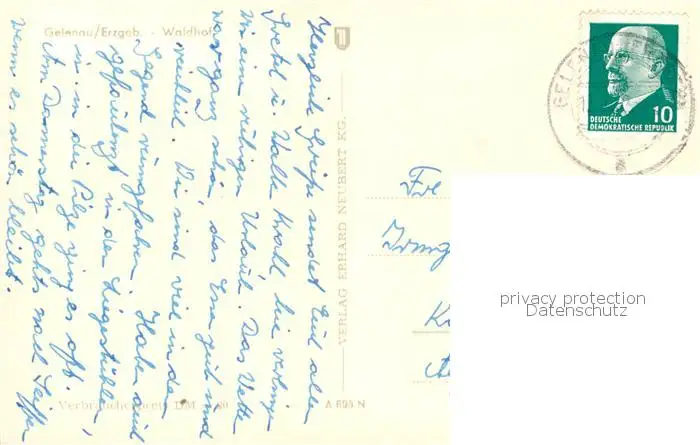 Gelenau/Erzgeb. - Waldhof
Herzliche Grüße sendet Euch allen
Gretel u. Walter Wohl hie verbringen
wir ein ruhigen Urlaub. Das Wetter
war ganz schön, das Essen gut und
reichlich. Wir sind viel in der
Gegend rumgefahren. Haben viel
gefaulenzt in den Liegestühlen,
in die Pilze ging es oft.
Am Donnerstag gehts nach
wenn es schön bleibt.
VERLAG ERHARD NEUBERT KG.
Verbraucherpreis DM
A 695 N
GELENAU
10
DEUTSCHE
DEMOKRATISCHE REPUBLIK
privacy protection
Datenschutz